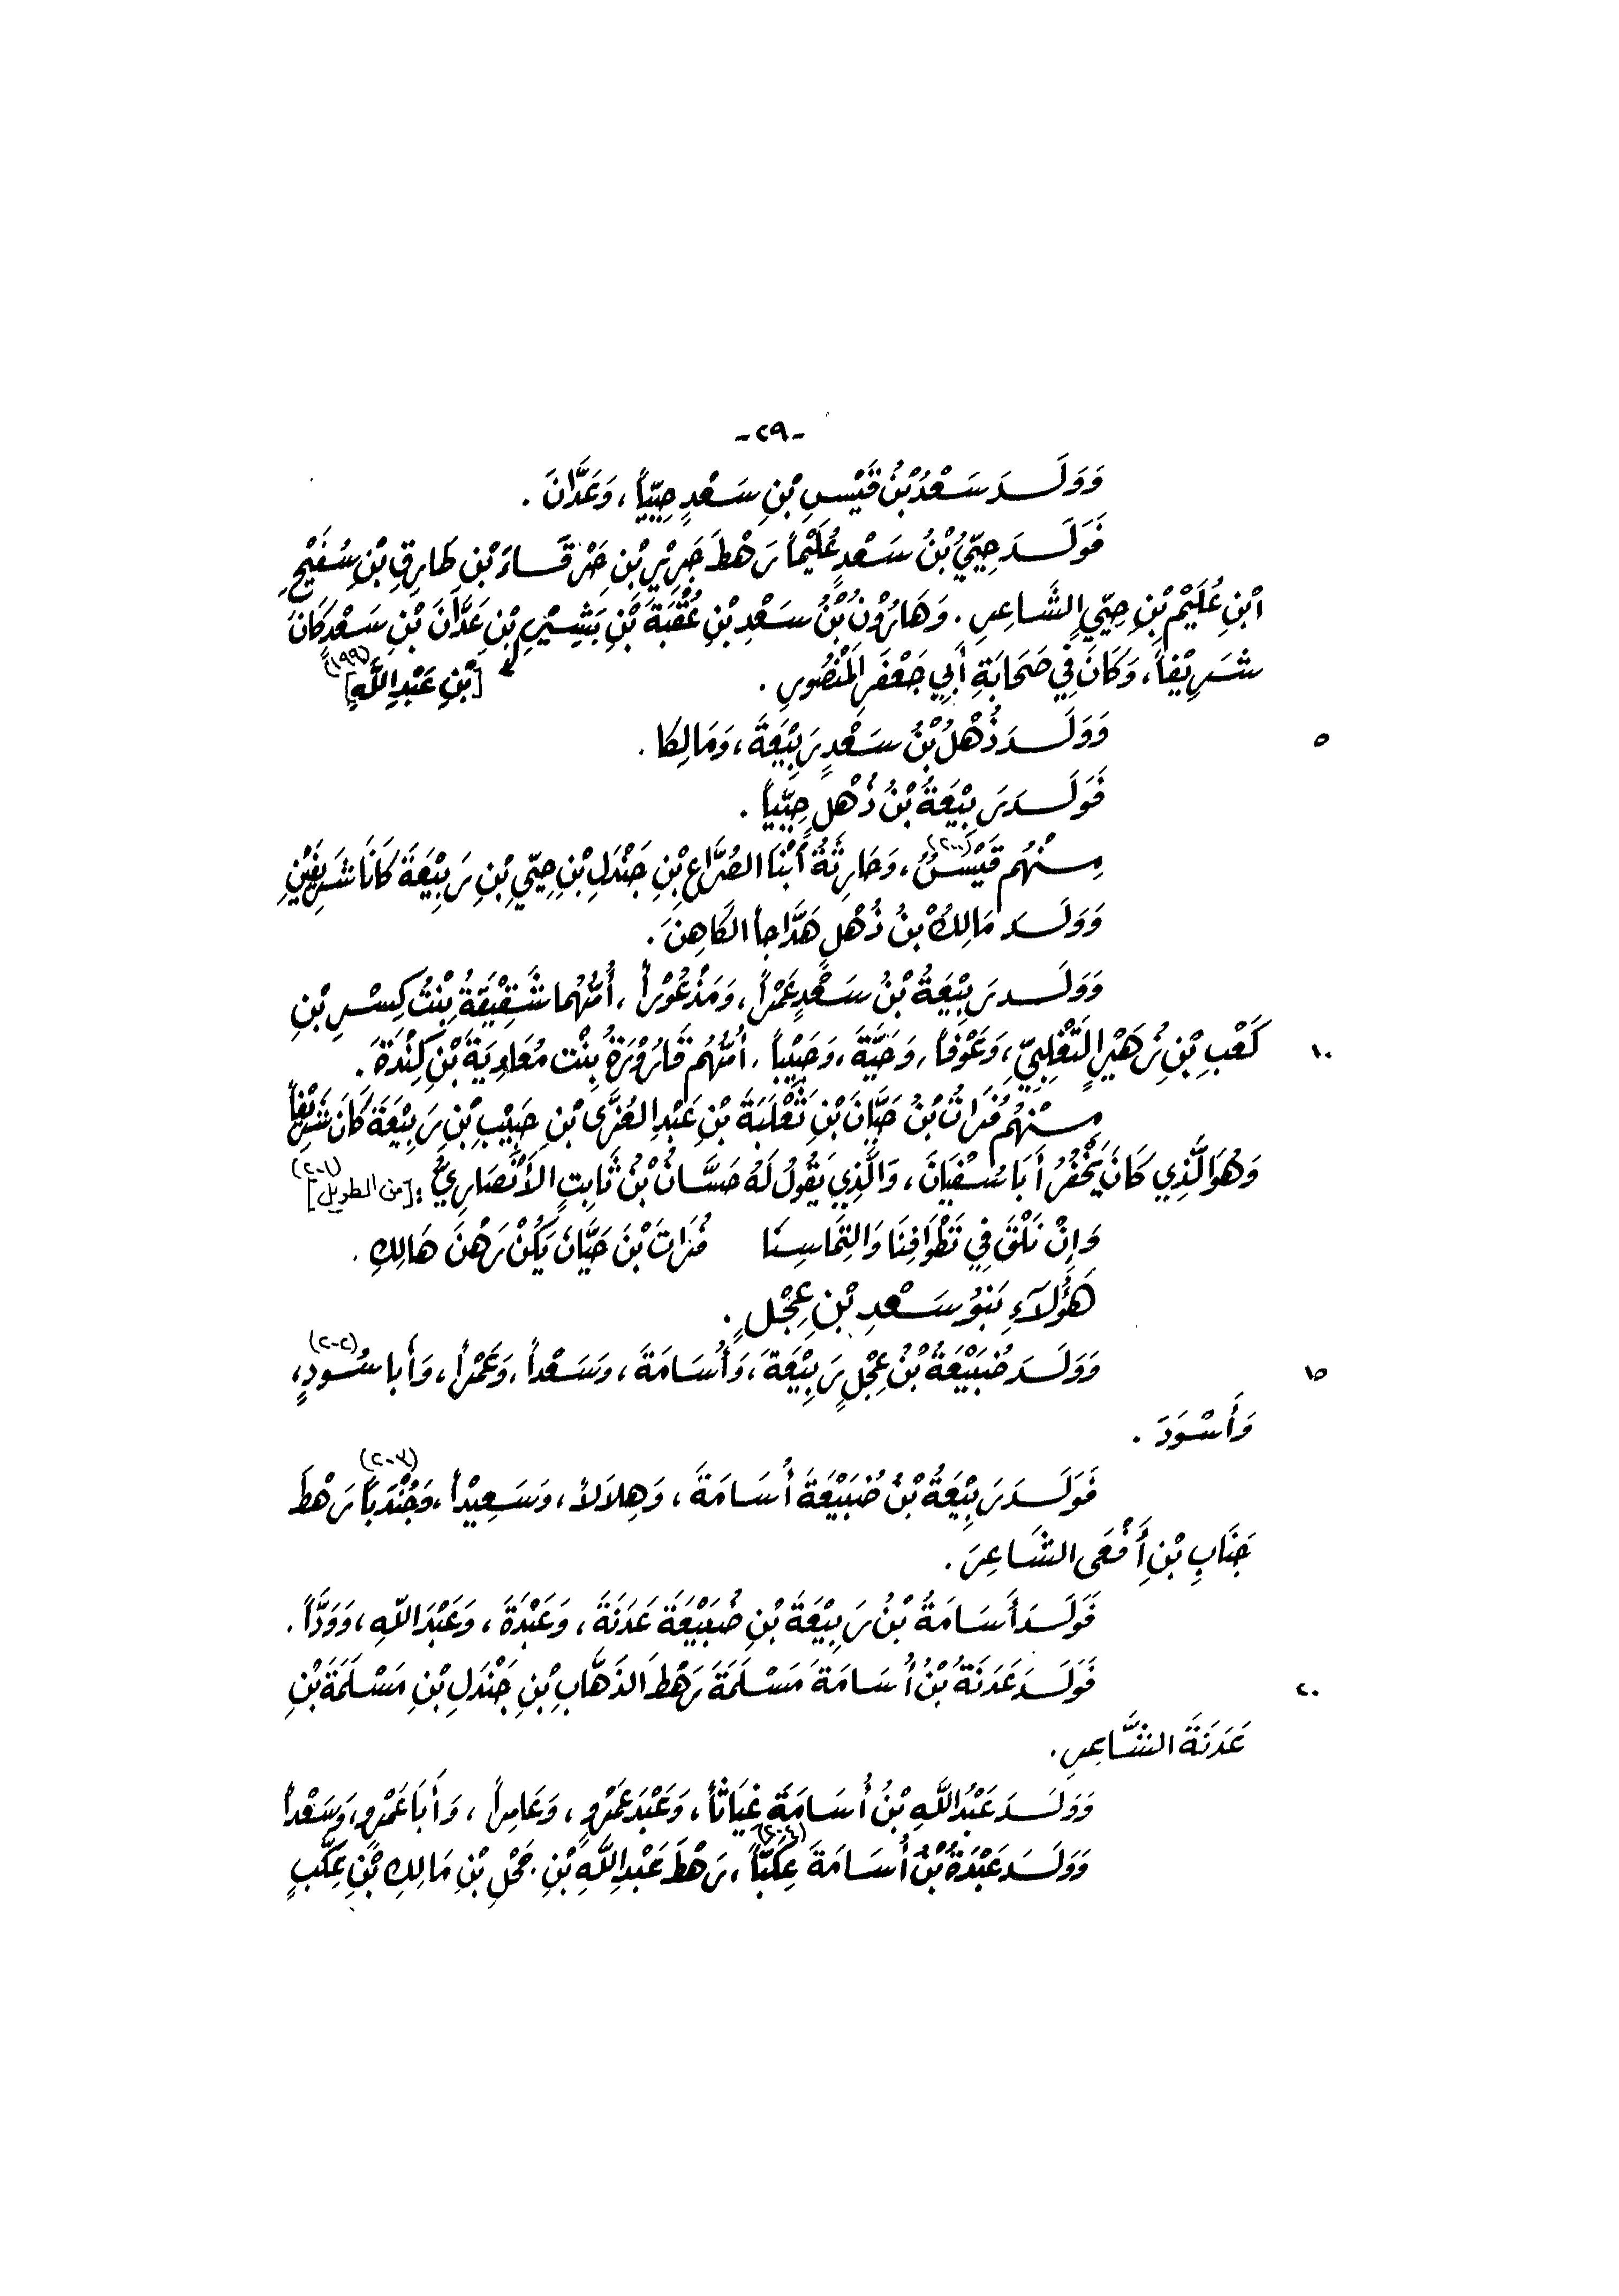 -٢٩-
وَوَلَـدَ سَعْدُ بْنُ قَيْسِ بْنِ سَعْدٍ حِيَيّاً، وَعَدَّانَ.
فَوَلَـدَ حِيَيُّ بْنُ سَعْدٍ عُلَيْماً رَهْطَ جَرِيْرِ بْنِ خَرْقَـاءَ بْنِ طَارِقِ بْنِ سُفَيْحِ
ابْنِ عُلَيْمِ بْنِ حِيَيٍّ الشَّاعِرِ. وَهَارُوْنُ بْنُ سَعْدِ بْنِ عُقْبَةَ بْنِ بَشِيْرِ بْنِ عَدَّانَ بْنِ سَعْدٍ كَانَ
شَرِيْفاً، وَكَانَ فِي صَحَابَةِ أَبِي جَعْفَرٍ المَنْصُورِ. [بْنِ عَبْدِ اللَّهِ] (١٩٩)
وَوَلَـدَ ذُهْلُ بْنُ سَعْدٍ رَبِيْعَةَ، وَمَالِكا. ٥
فَوَلَـدَ رَبِيْعَةُ بْنُ ذُهْلٍ حِيَيّاً.
مِنْهُم قَيْسٌ (٢٠٠)، وَحَارِثَةُ ابْنَا الصُّرَّاعِ بْنِ جَنْدَلِ بْنِ حِيَيِّ بْنِ رَبِيْعَةَ كَانَا شَرِيْفَيْنِ
وَوَلَـدَ مَالِكُ بْنُ ذُهْلٍ هَدَّاجاً الكَاهِنَ.
وَوَلَـدَ رَبِيْعَةُ بْنُ سَعْدٍ عَمْراً، وَمَذْعُوْراً، أُمُّهُما شَقِيْقَةُ بِنْتُ كِسْرِ بْنِ
كَعْبِ بْنِ زُهَيْرٍ التَّغْلِبِيِّ، وَعَوْفاً، وَحَيَّةَ، وَحَبِيْباً، أُمُّهُم قَارُوْرَةُ بِنْت مُعَاوِيَةَ بْنِ كِنْدَةَ. ١٠
مِنْهُم فُرَاتُ بْنُ حَيَّانَ بْنِ ثَعْلَبَةَ بْنِ عَبْدِ العُزَّى بْنِ حَبِيْبِ بْنِ رَبِيْعَةَ كَانَ شَرِيْفاً
وَهُوَ الَّذِي كَانَ يَخْفُرُ أَبَا سُفْيَانَ، وَالَّذِي يَقُولُ لَهُ حَسَّانُ بْنُ ثَابِتٍ الأَنْصَارِيُّ: [من الطويل] (٢٠١)
وَإِنْ نَلْقَ فِي تَطْوَافِنَا وَالتِمَاسِنَا فُرَاتَ بْنَ حَيَّانَ يَكُنْ رَهْنَ هَالِكِ.
هَؤُلَاءِ بَنُوْ سَعْدِ بْنِ عِجْلٍ.
وَوَلَـدَ ضُبَيْعَةُ بْنُ عِجْلٍ رَبِيْعَةَ، وَأُسَامَةَ، وَسَعْداً، وَعَمْراً، وَأَبا سُودٍ (٢٠٢)، ١٥
وَأَسْوَدَ.
فَوَلَـدَ رَبِيْعَةُ بْنُ ضُبَيْعَةَ أُسَامَةَ، وَهِلاَلاً، وَسَعِيْداً، وَجُنْدَباً (٢٠٣) رَهْطَ
جَنَابِ بْنِ أَفْعَى الشَّاعِرَ.
فَوَلَـدَ أُسَامَةُ بْنُ رَبِيْعَةَ بْنِ ضُبَيْعَةَ عَدَنَةَ، وَعَبْدَةَ، وَعَبْدَ اللّهِ، وَوَدّاً.
فَوَلَـدَ عَدَنَةُ بْنُ أُسَامَةَ مَسْلَمَةَ رَهْطَ الذَهَّابِ بْنِ جَنْدَلِ بْنِ مَسْلَمَةَ بْنِ ٢٠
عَدَنَةَ الشَّاعِرِ.
وَوَلَـدَ عَبْدُ اللَّهِ بْنُ أُسَامَةَ غِيَاثاً، وَعَبْدَ عَمْرٍو، وَعَامِراً، وَأَبَا عَمْرٍو، وَسَعْداً
وَوَلَـدَ عَبْدَةُ بْنُ أُسَامَةَ عِكَبّاً (٢٠٤)، رَهْطَ عَبْدِ اللَّهِ بْنِ جَحْلِ بْنِ مَالِكِ بْنِ عِكَبٍّ